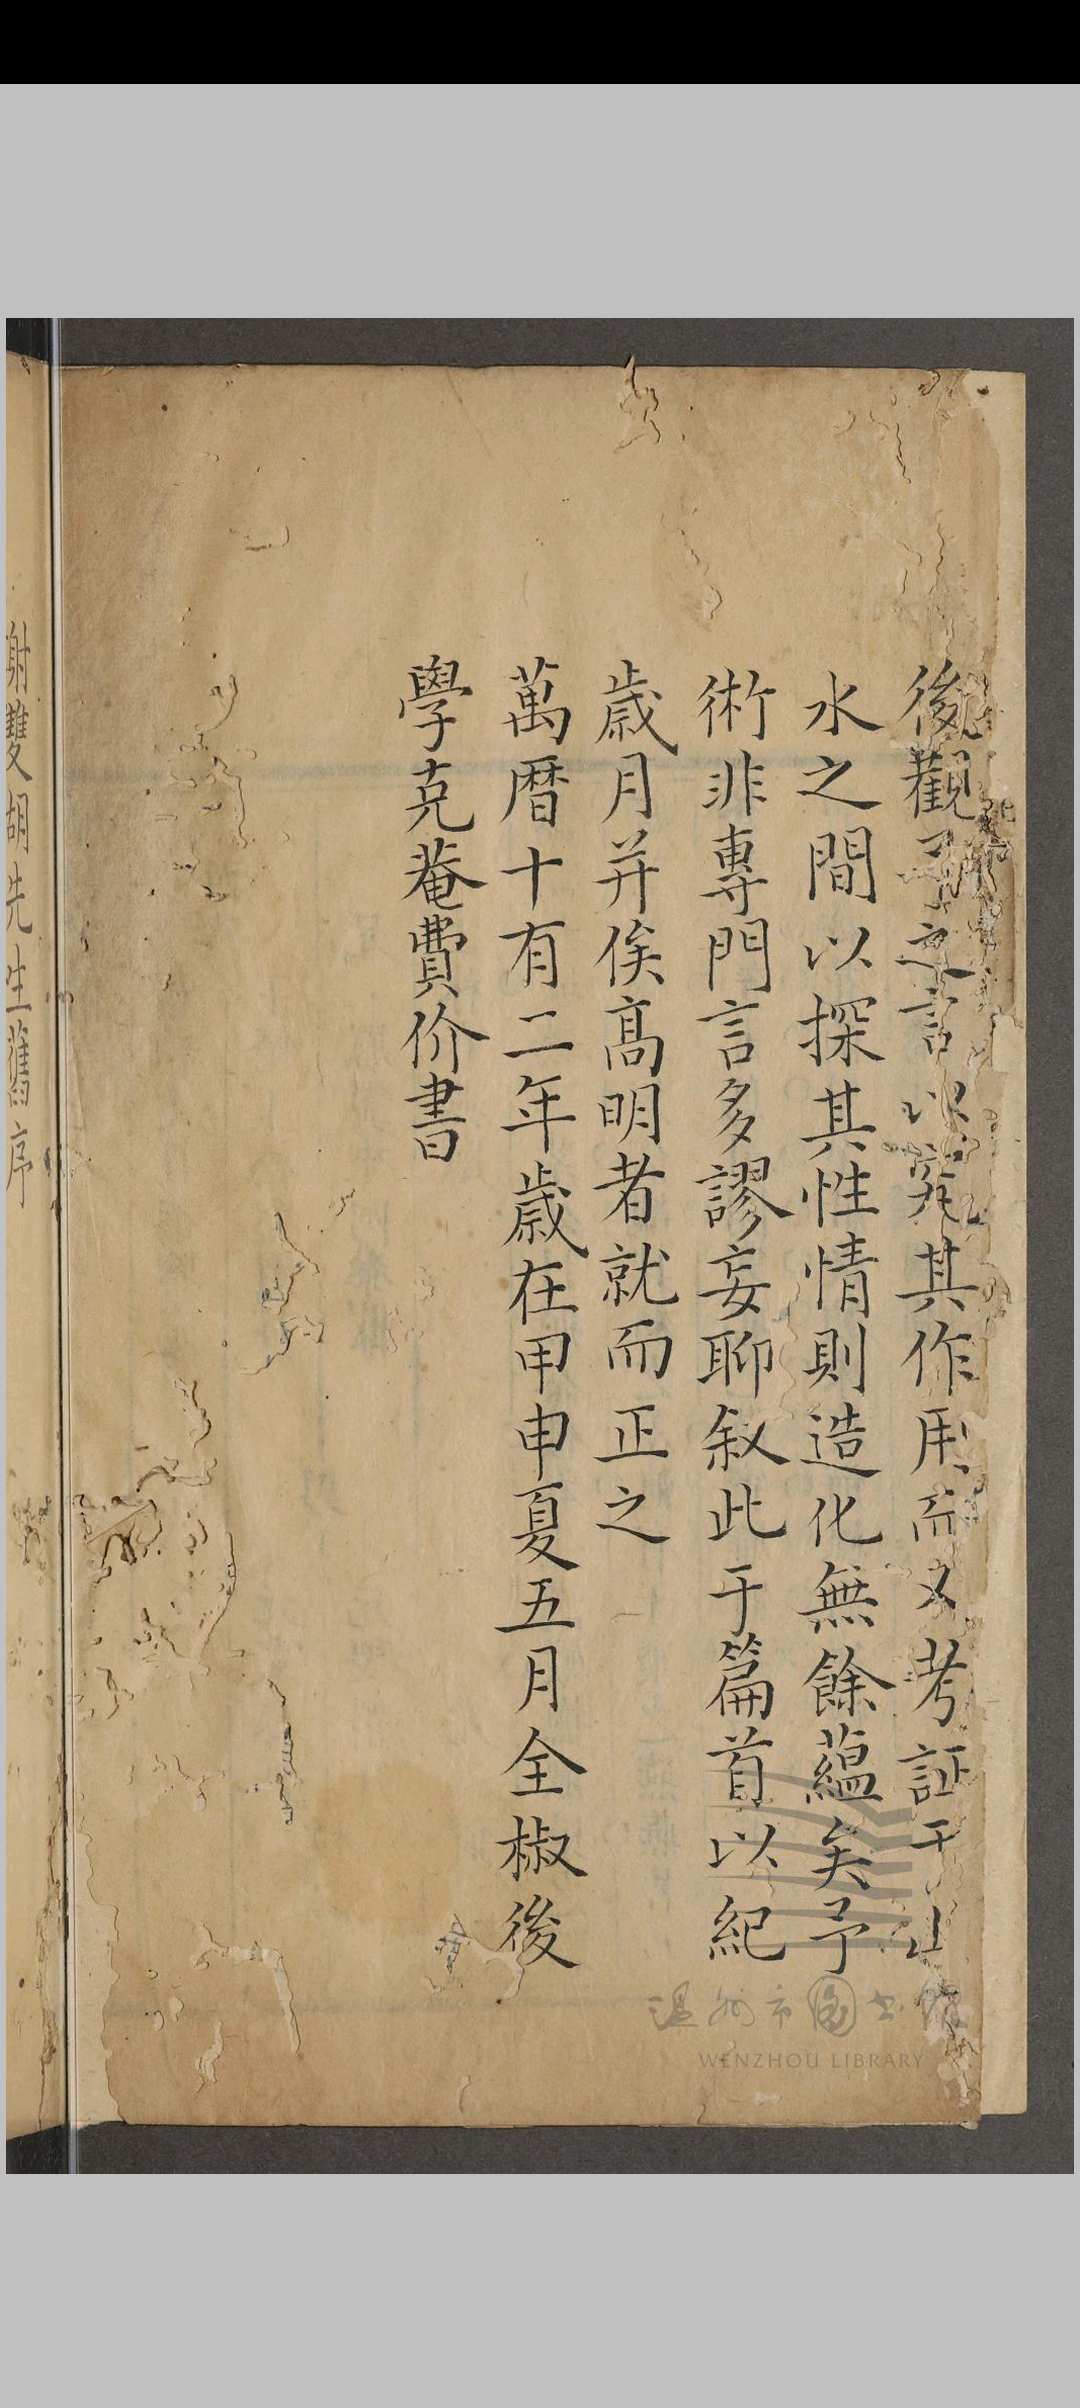 後觀予之言以究其作用而又考証于山
水之間以探其性情則造化無餘蘊矣予
術非專門言多謬妄聊叙此于篇首以紀
歲月并俟高明者就而正之
萬曆十有二年歲在甲申夏五月全椒後
學克菴費价書
謝雙湖先生舊序
温州市图书馆
WENZHOU LIBRARY